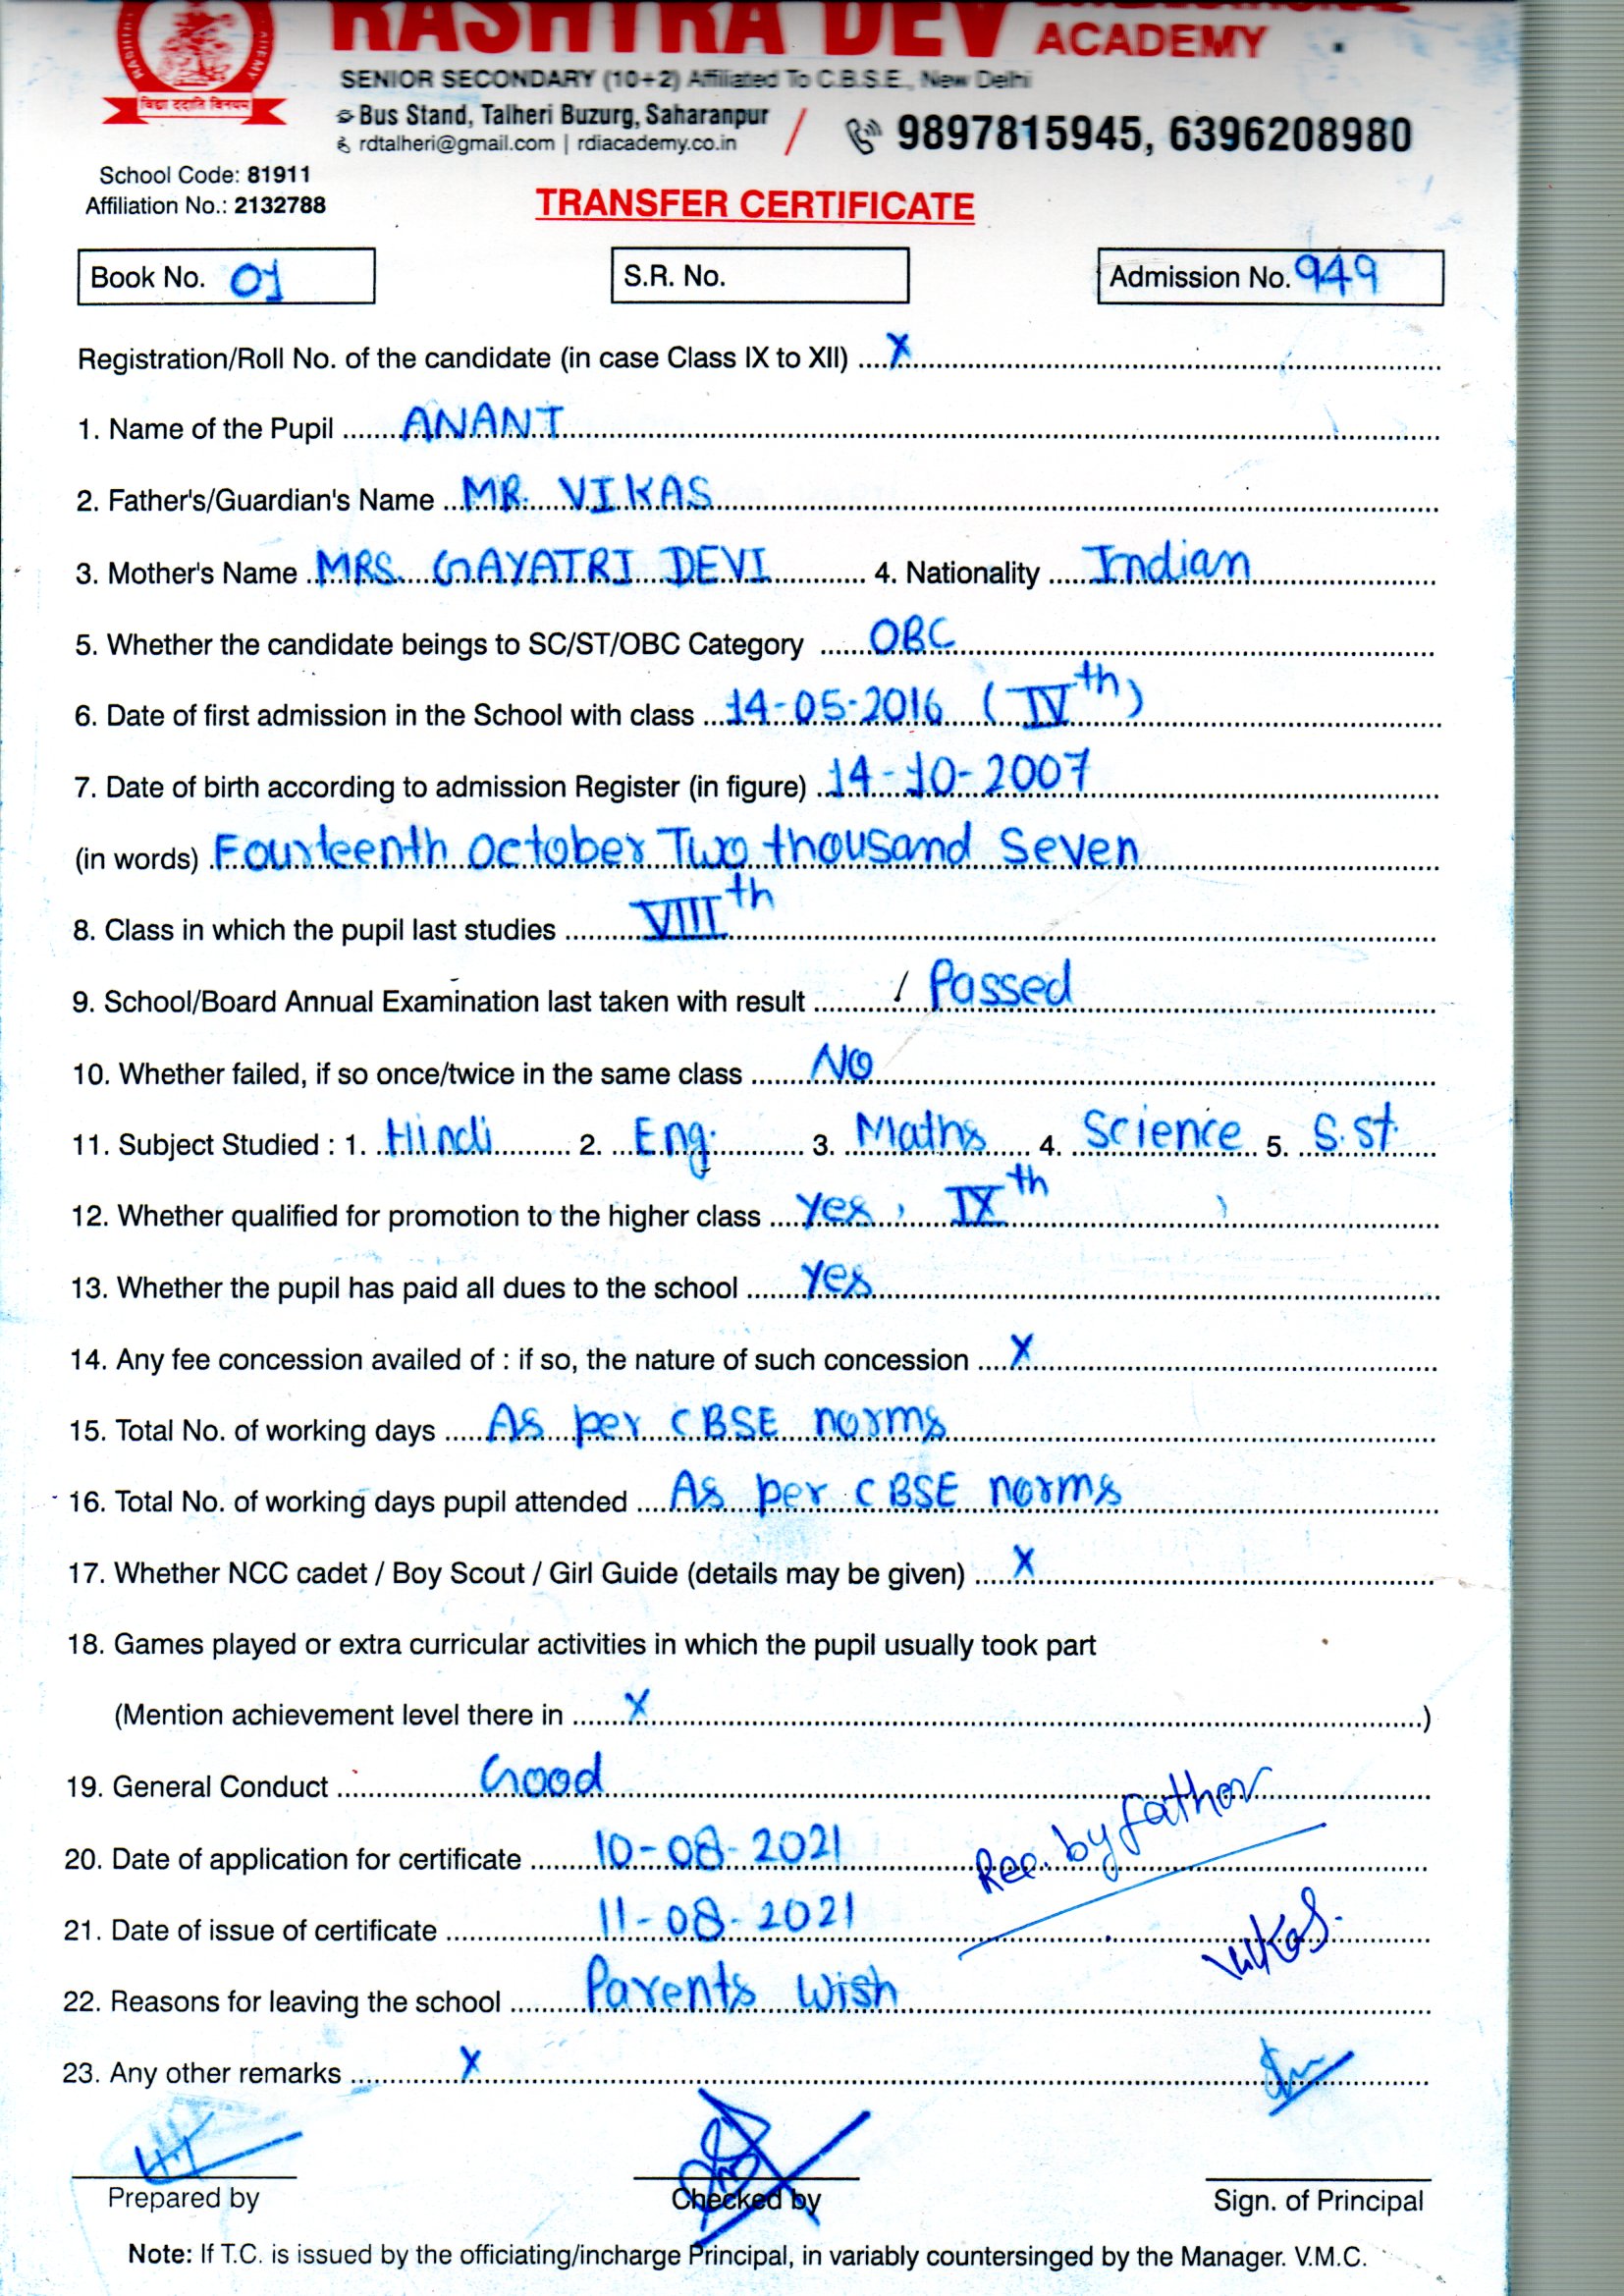 RASHTRA DEV
ACADEMY
SENIOR SECONDARY (10+2) Affiliated To C.B.S.E., New Delhi
Bus Stand, Talheri Buzurg, Saharanpur
rdtalheri@gmail.com | rdiacademy.co.in
9897815945, 6396208980
विद्या ददाति विनयम्
School Code: 81911
Affiliation No.: 2132788
TRANSFER CERTIFICATE
Book No. 01 S.R. No. Admission No. 949
Registration/Roll No. of the candidate (in case Class IX to XII) ....X....
1. Name of the Pupil ....ANANT....
2. Father's/Guardian's Name ....MR. VIKAS....
3. Mother's Name ....MRS. GAYATRI DEVI.... 4. Nationality ....Indian....
5. Whether the candidate beings to SC/ST/OBC Category ....OBC....
6. Date of first admission in the School with class ....14-05-2016 (IVth)....
7. Date of birth according to admission Register (in figure) ....14-10-2007....
(in words) ....Fourteenth October Two thousand Seven....
8. Class in which the pupil last studies ....VIIIth....
9. School/Board Annual Examination last taken with result ..../ Passed....
10. Whether failed, if so once/twice in the same class ....NO....
11. Subject Studied : 1. ....Hindi.... 2. ....Eng..... 3. ....Maths.... 4. ....Science.... 5. ....S.st.
12. Whether qualified for promotion to the higher class ....Yes, IXth....
13. Whether the pupil has paid all dues to the school ....Yes....
14. Any fee concession availed of : if so, the nature of such concession ....X....
15. Total No. of working days ....As per CBSE norms....
16. Total No. of working days pupil attended ....As per CBSE norms....
17. Whether NCC cadet / Boy Scout / Girl Guide (details may be given) ....X....
18. Games played or extra curricular activities in which the pupil usually took part
(Mention achievement level there in ....X....)
19. General Conduct ....Good....
20. Date of application for certificate ....10-08-2021....
Rec. by father
21. Date of issue of certificate ....11-08-2021....
Vikas.
22. Reasons for leaving the school ....Parents Wish....
23. Any other remarks ....X....
Prepared by Checked by Sign. of Principal
Note: If T.C. is issued by the officiating/incharge Principal, in variably countersinged by the Manager. V.M.C.